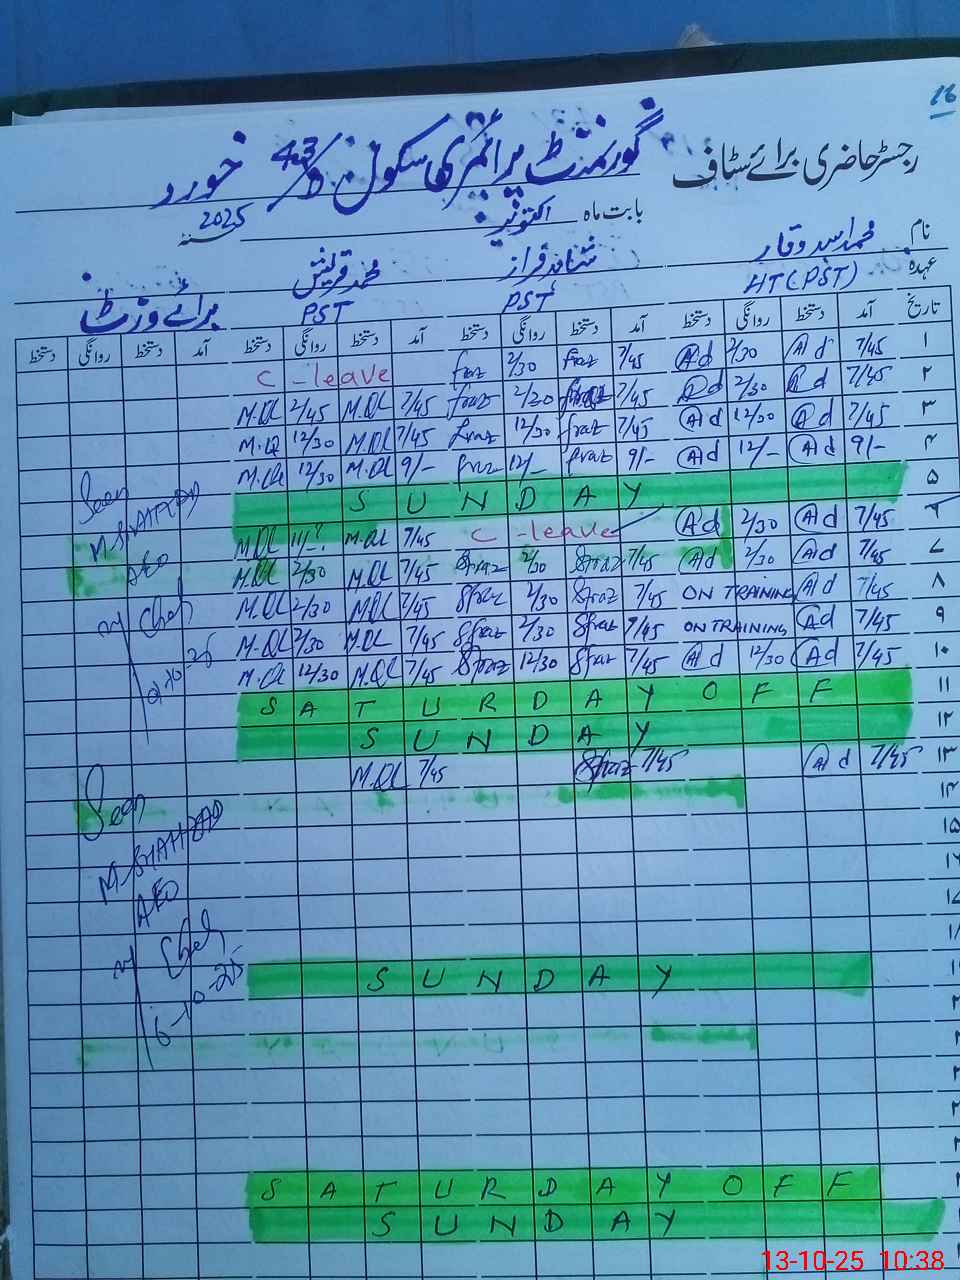 16
رجسٹر حاضری برائے سٹاف گورنمنٹ پرائمری سکول 43 خورد
بابت ماہ اکتوبر 2025
نام محمد اسد وقار شاہد فراز محمد قریش برائے وزٹ
عہدہ HT (PST) PST PST
تاریخ آمد دستخط روانگی دستخط آمد دستخط روانگی دستخط آمد دستخط روانگی دستخط آمد دستخط روانگی دستخط
۱ 7/45 Ad 2/30 Ad 7/45 fraz 2/30 fraz C-leave
۲ 7/45 Ad 2/30 Ad 7/45 fraz fraz 7/45 M.QL 2/45 M.QL
۳ 7/45 Ad 12/30 Ad 7/45 fraz 12/30 fraz 7/45 M.QL 12/30 M.QL
۴ 9/- Ad 12/- Ad 9/- fraz 12/- fraz 9/- M.QL 12/30 M.QL
۵ SUNDAY
۶ 7/45 Ad 2/30 Ad C-leave 7/45 M.QL M.QL
۷ 7/45 Ad 2/30 Ad 7/45 Sfraz 2/30 Sfraz 7/45 M.QL 2/30 M.QL
۸ 7/45 Ad ON TRAINING 7/45 Sfraz 2/30 Sfraz 7/45 M.QL 2/30 M.QL
۹ 7/45 Ad ON TRAINING 7/45 Sfraz 2/30 Sfraz 7/45 M.QL 2/30 M.QL
۱۰ 7/45 Ad 12/30 Ad 7/45 Sfraz 12/30 Sfraz 7/45 M.QL 12/30 M.QL
۱۱ SATURDAY OFF
۱۲ SUNDAY
۱۳ 7/45 Ad 7/45 Sfraz 7/45 M.QL
۱۴
۱۵
۱۶
۱۷
SUNDAY
SATURDAY OFF
SUNDAY
Seen
M. SHAHZAD
AEO
Seen
M. SHAHZAD
AEO
6-10-25
13-10-25 10:38